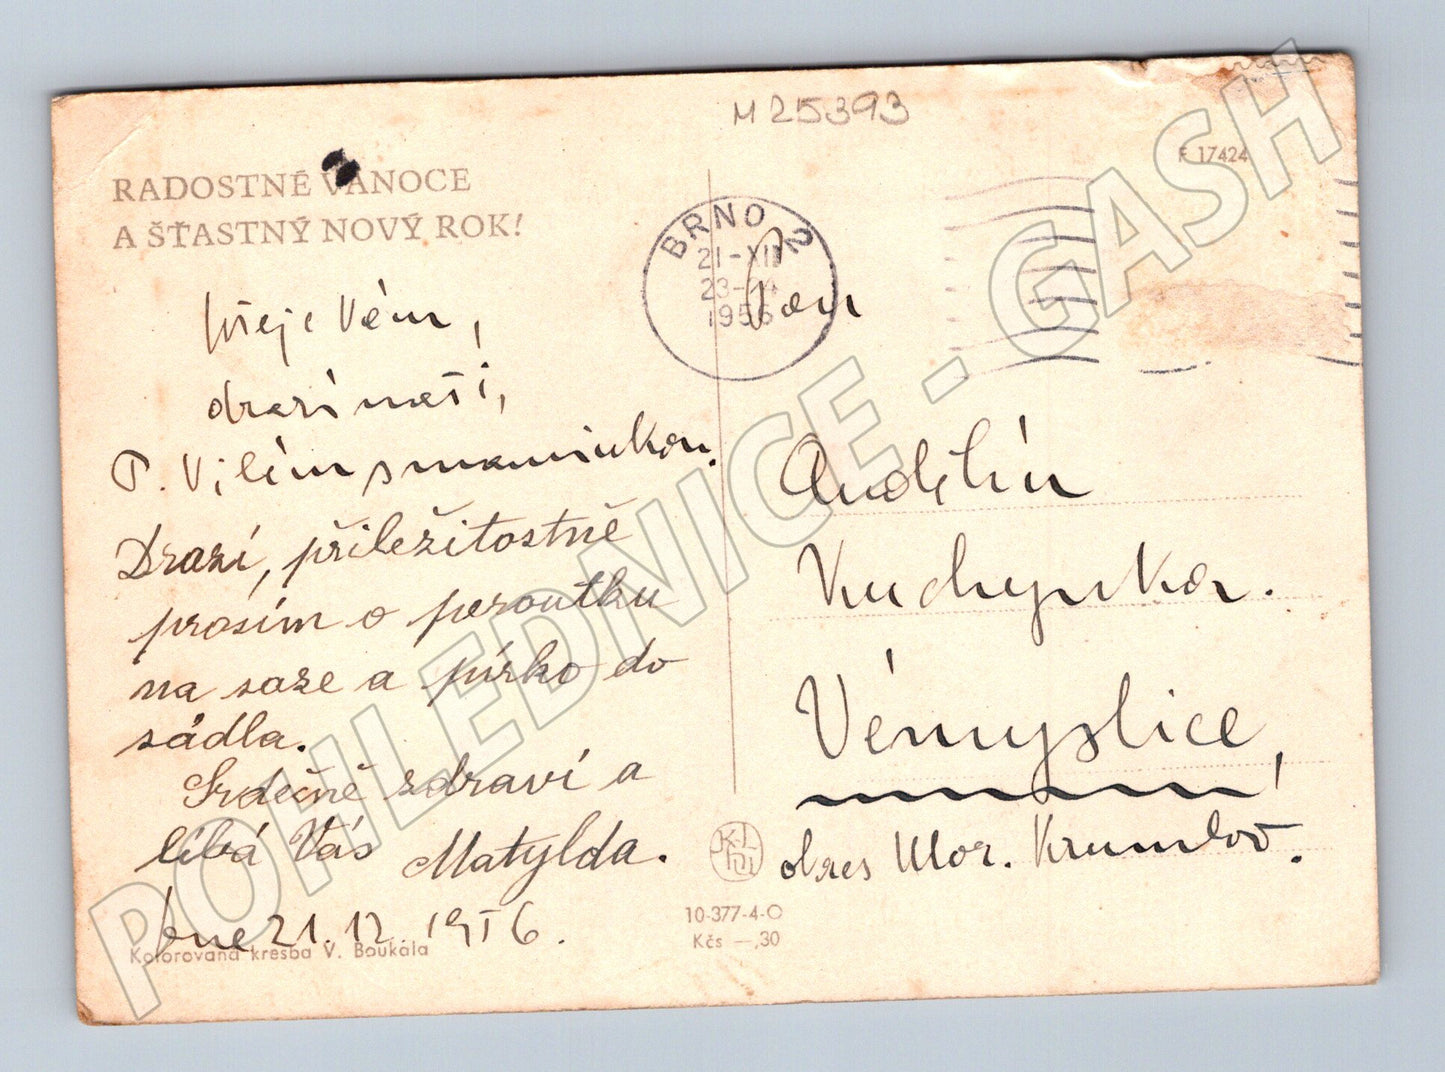 M 25393
F 17424
RADOSTNÉ VÁNOCE
A ŠŤASTNÝ NOVÝ ROK!
BRNO 2
21-XII
23-24
1956
přeje Vám,
drazí naši,
P. Vilém s maminkou.
Drazí, příležitostně
prosím o peroutku
na saze a pírko do
sádla.
Srdečně zdraví a
líbá Vás Matylda.
Dne 21.12.1956.
Kolorovaná kresba V. Boukala
Pan
Andělín
Kuchynka.
Vémyslice,
okres Mor. Krumlov.
10-377-4-O
Kčs —,30
POHLEDNICE - GASH